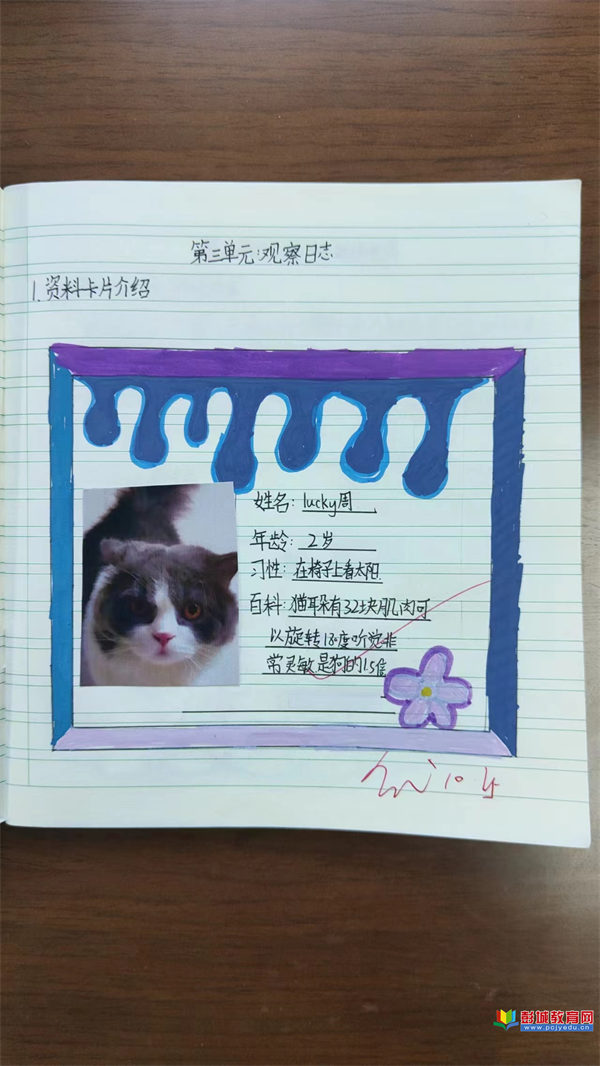 第三单元:观察日志
1.资料卡片介绍
姓名: lucky周
年龄: 2岁
习性: 在椅子上看太阳
百科: 猫耳朵有32块肌肉可
以旋转18度听觉非
常灵敏是狗的1.5倍
10.4
彭城教育网
www.pcjyedu.cn